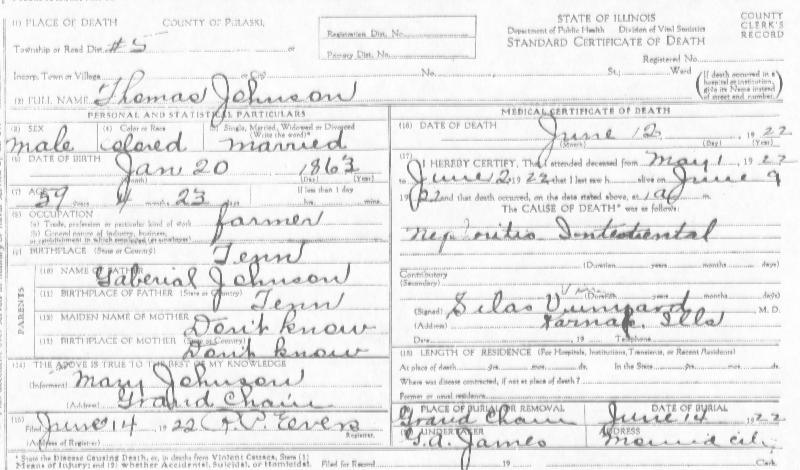 (1) PLACE OF DEATH COUNTY OF PULASKI,
Registration Dist. No.
STATE OF ILLINOIS
Department of Public Health Division of Vital Statistics
STANDARD CERTIFICATE OF DEATH
COUNTY CLERK'S RECORD
Township or Road Dist. #5 or
Primary Dist. No.
Registered No.
Incorp. Town or Village or City No. St.; Ward
(If death occurred in a hospital or institution, give its Name instead of street and number.)
(2) FULL NAME Thomas Johnson
PERSONAL AND STATISTICAL PARTICULARS
(3) SEX (4) Color or Race (5) Single, Married, Widowed or Divorced (Write the word)*
male colored married
(6) DATE OF BIRTH Jan 20 1863
(Month) (Day) (Year)
(7) AGE 59 years 4 months 23 If less than 1 day hrs. mins.
(8) OCCUPATION
(a) Trade, profession or particular kind of work farmer
(b) General nature of industry, business, or establishment in which employed (or employer)
(9) BIRTHPLACE (State or Country) Tenn
PARENTS
(10) NAME OF FATHER Gaberial Johnson
(11) BIRTHPLACE OF FATHER (State or Country) Tenn
(12) MAIDEN NAME OF MOTHER Don't know
(13) BIRTHPLACE OF MOTHER (State or Country) Don't know
(14) THE ABOVE IS TRUE TO THE BEST OF MY KNOWLEDGE
(Informant) Mary Johnson
(Address) Grand Chain
(15) Filed June 14 1922 Evers Registrar.
(Address of Registrar)
MEDICAL CERTIFICATE OF DEATH
(16) DATE OF DEATH June 12 1922
(Month) (Day) (Year)
(17) I HEREBY CERTIFY, That I attended deceased from May 1 1922
to June 2 1922 that I last saw h alive on June 9
1922 and that death occurred, on the date stated above, at 1 a m.
The CAUSE OF DEATH* was as follows:
(Duration) years months days)
Contributory
(Secondary)
(Duration) years months days)
(Signed) Silas M. D.
(Address) Karnak, Ills
Date 19 Telephone
(18) LENGTH OF RESIDENCE (For Hospitals, Institutions, Transients, or Recent Residents)
At place of death yrs. mos. ds. In the State yrs. mos. ds.
Where was disease contracted, if not at place of death?
Former or usual residence
PLACE OF BURIAL OR REMOVAL DATE OF BURIAL
Grand Chain June 14 1922
UNDERTAKER ADDRESS
G.A. James Mound City
* State the Disease Causing Death, or, in deaths from Violent Causes, State (1)
Means of Injury; and (2) whether Accidental, Suicidal, or Homicidal. Filed for Record 19 Clerk.